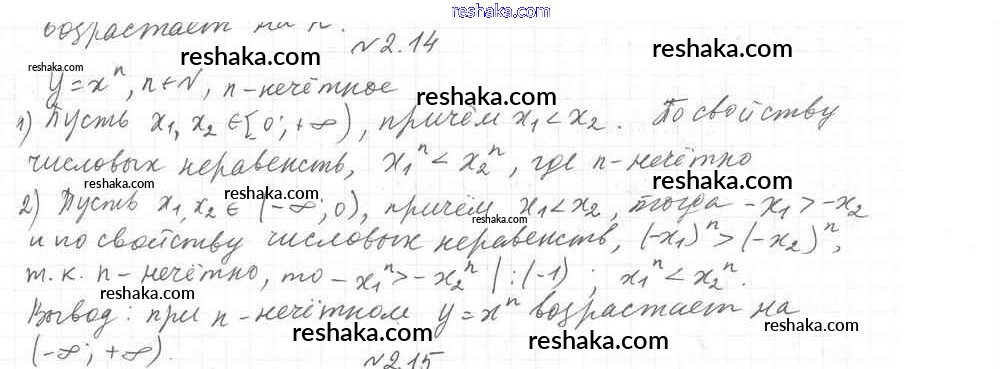 reshaka.com
возрастает на R.
№2.14
reshaka.com reshaka.com
reshaka.com
y = xⁿ, n ∈ N, n - нечётное
reshaka.com
1) Пусть x₁, x₂ ∈ [0; +∞), причём x₁ < x₂. По свойству
числовых неравенств, x₁ⁿ < x₂ⁿ, где n - нечётно
reshaka.com reshaka.com reshaka.com
2) Пусть x₁, x₂ ∈ (-∞; 0), причём x₁ < x₂, тогда -x₁ > -x₂
reshaka.com
и по свойству числовых неравенств, (-x₁)ⁿ > (-x₂)ⁿ,
т.к. n - нечётно, то -x₁ⁿ > -x₂ⁿ | : (-1) ; x₁ⁿ < x₂ⁿ.
reshaka.com
Вывод: при n - нечётном y = xⁿ возрастает на
reshaka.com reshaka.com reshaka.com
(-∞; +∞).
№2.15